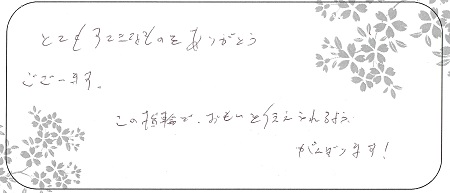 とてもステキなものをありがとう
ございます。
この指輪で、おもいを伝えられるよう
がんばります！